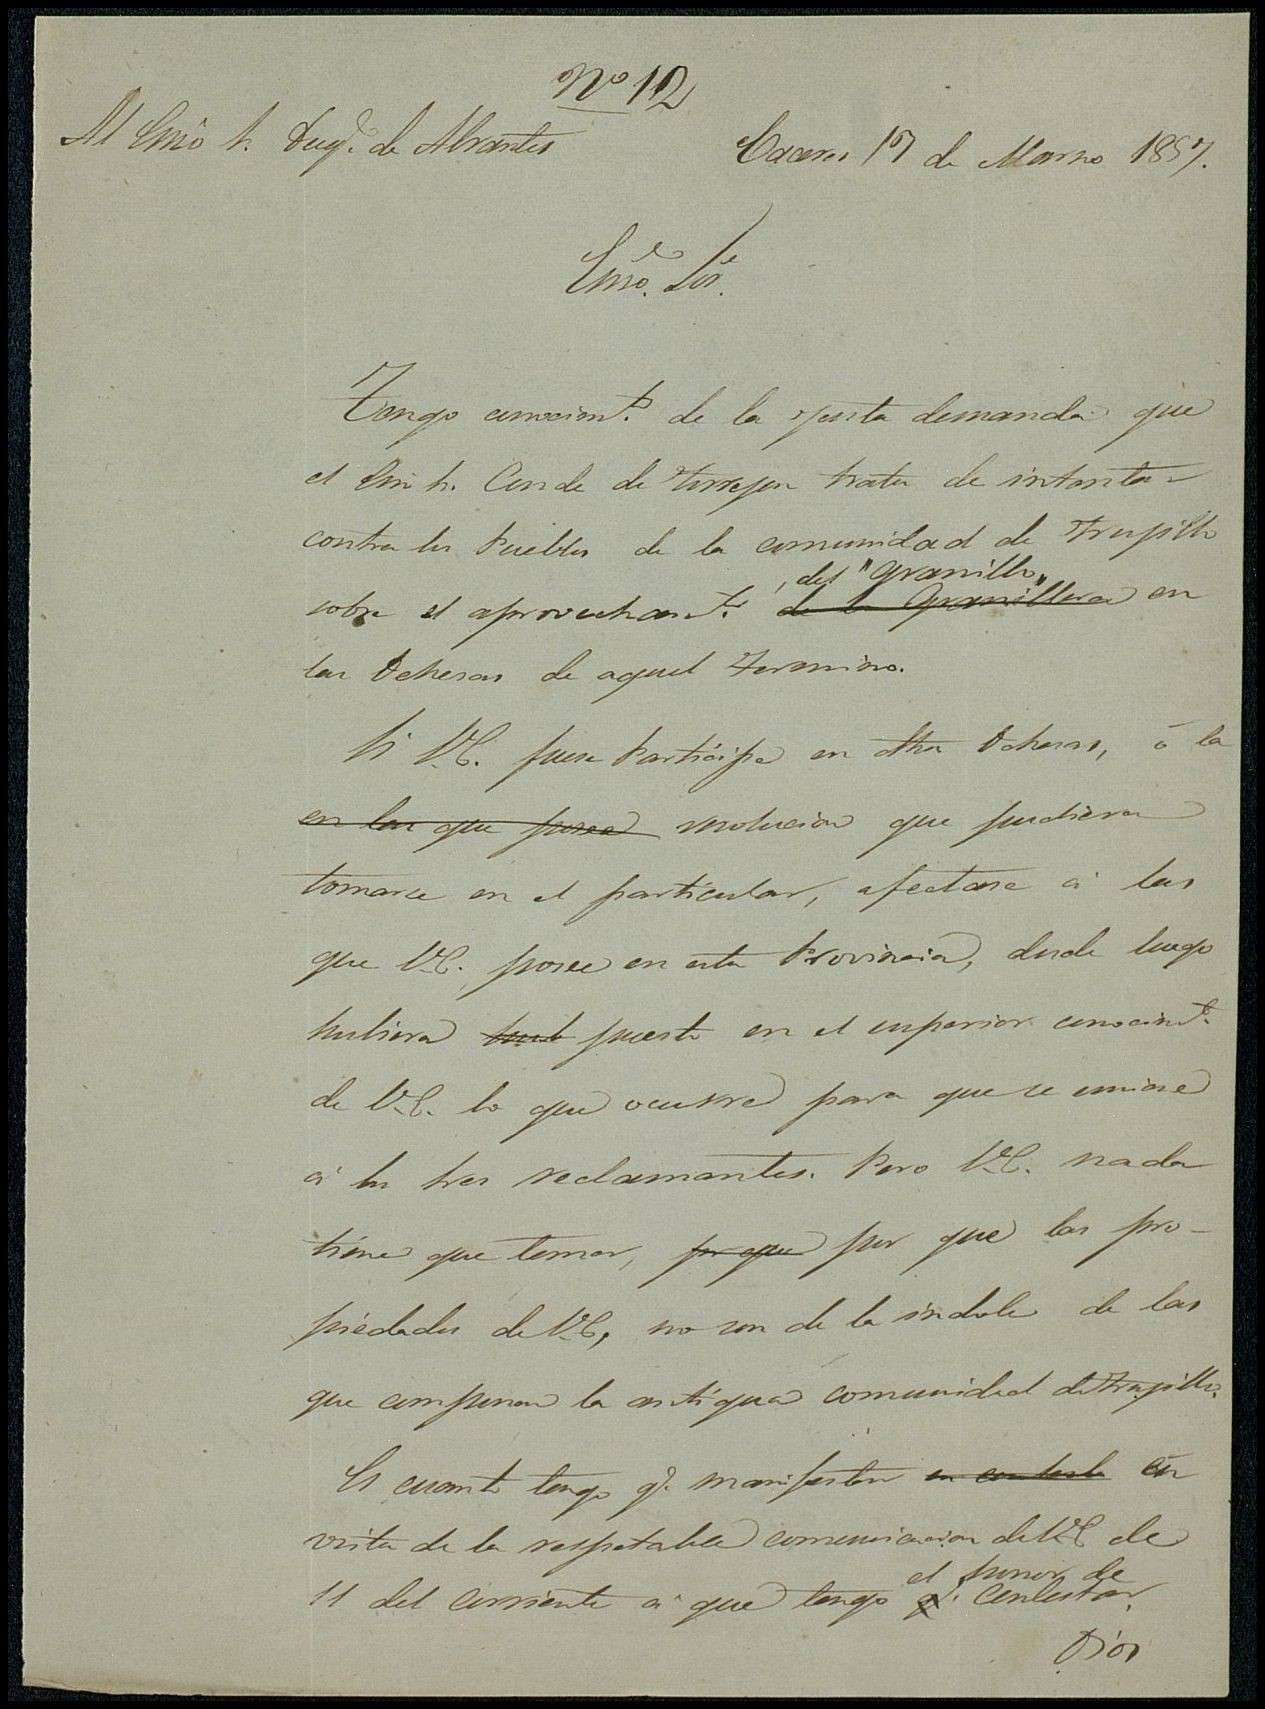 Nº 12
Al Exmo S. Duqe. de Abrantes
Caceres 17 de Marzo 1857.
Exmo. Sor.
Tengo conocimto. de la justa demanda que
el Exmo S. Conde de Torrejon trata de intentar
contra los Pueblos de la comunidad de Trujillo
, del "Granillo"
sobre el aprovechamto. de la Granillera en
las Dehesas de aquel termino.
Si V.E. fuese Participe en dhas Dehesas, ó la
en las que posee resolucion que pudiera
tomarse en el particular, afectase á las
que V.E. posee en esta Provincia, desde luego
hubiera puesto en el superior conocimto.
de V.E. lo que ocurre para que se uniese
á los tres reclamantes. Pero V.E. nada
tiene que temer, por que por que las pro-
piedades de V.E, no son de la indole de las
que componen la antigua comunidad de Trujillo.
Es cuanto tengo q. manifestar en contesto en
vista de la respetable comunicacion de V.E de
el honor de
11 del corriente á que tengo q. contestar.
Dios